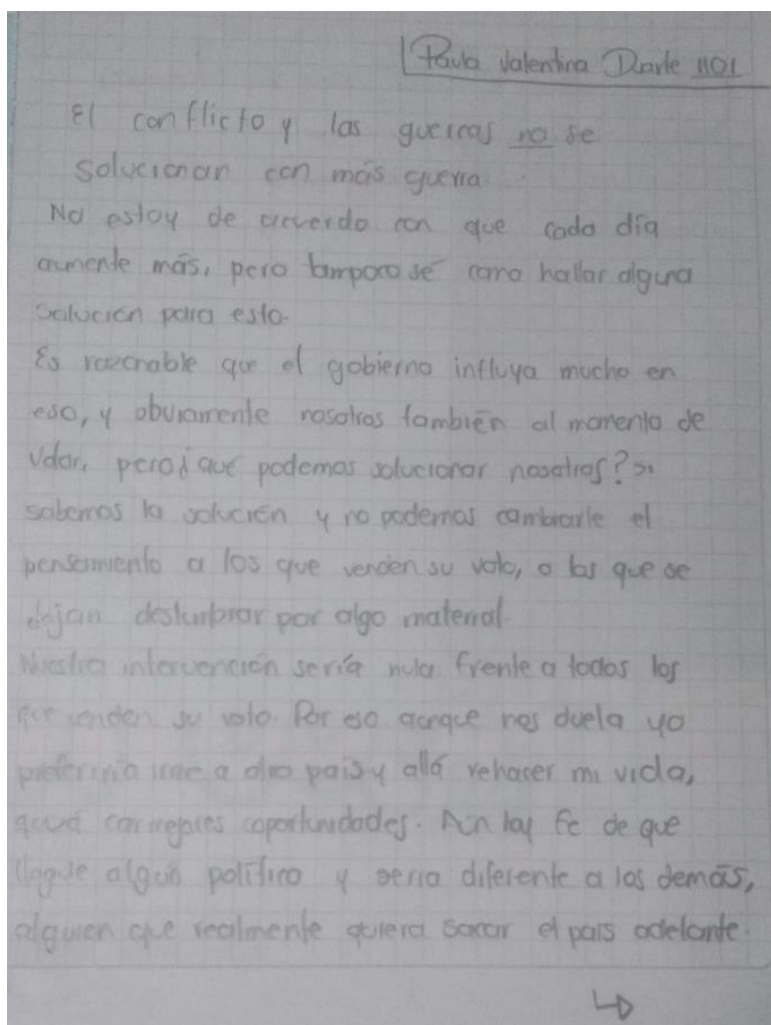 Paula Valentina Duarte 1101
El conflicto y las guerras no se
solucionan con más guerra.
No estoy de acuerdo con que cada día
aumente más, pero tampoco sé como hallar alguna
solución para esto.
Es razonable que el gobierno influya mucho en
eso, y obviamente nosotros también al momento de
votar, pero ¿qué podemos solucionar nosotros? si
sabemos la solución y no podemos cambiarle el
pensamiento a los que venden su voto, o los que se
dejan deslumbrar por algo material.
Nuestra intervención sería nula frente a todos los
que venden su voto. Por eso aunque nos duela yo
preferiría irme a otro país y allá rehacer mi vida,
quizá con mejores oportunidades. Aún hay fe de que
llegue algún político y seria diferente a los demás,
alguien que realmente quiera sacar el país adelante.